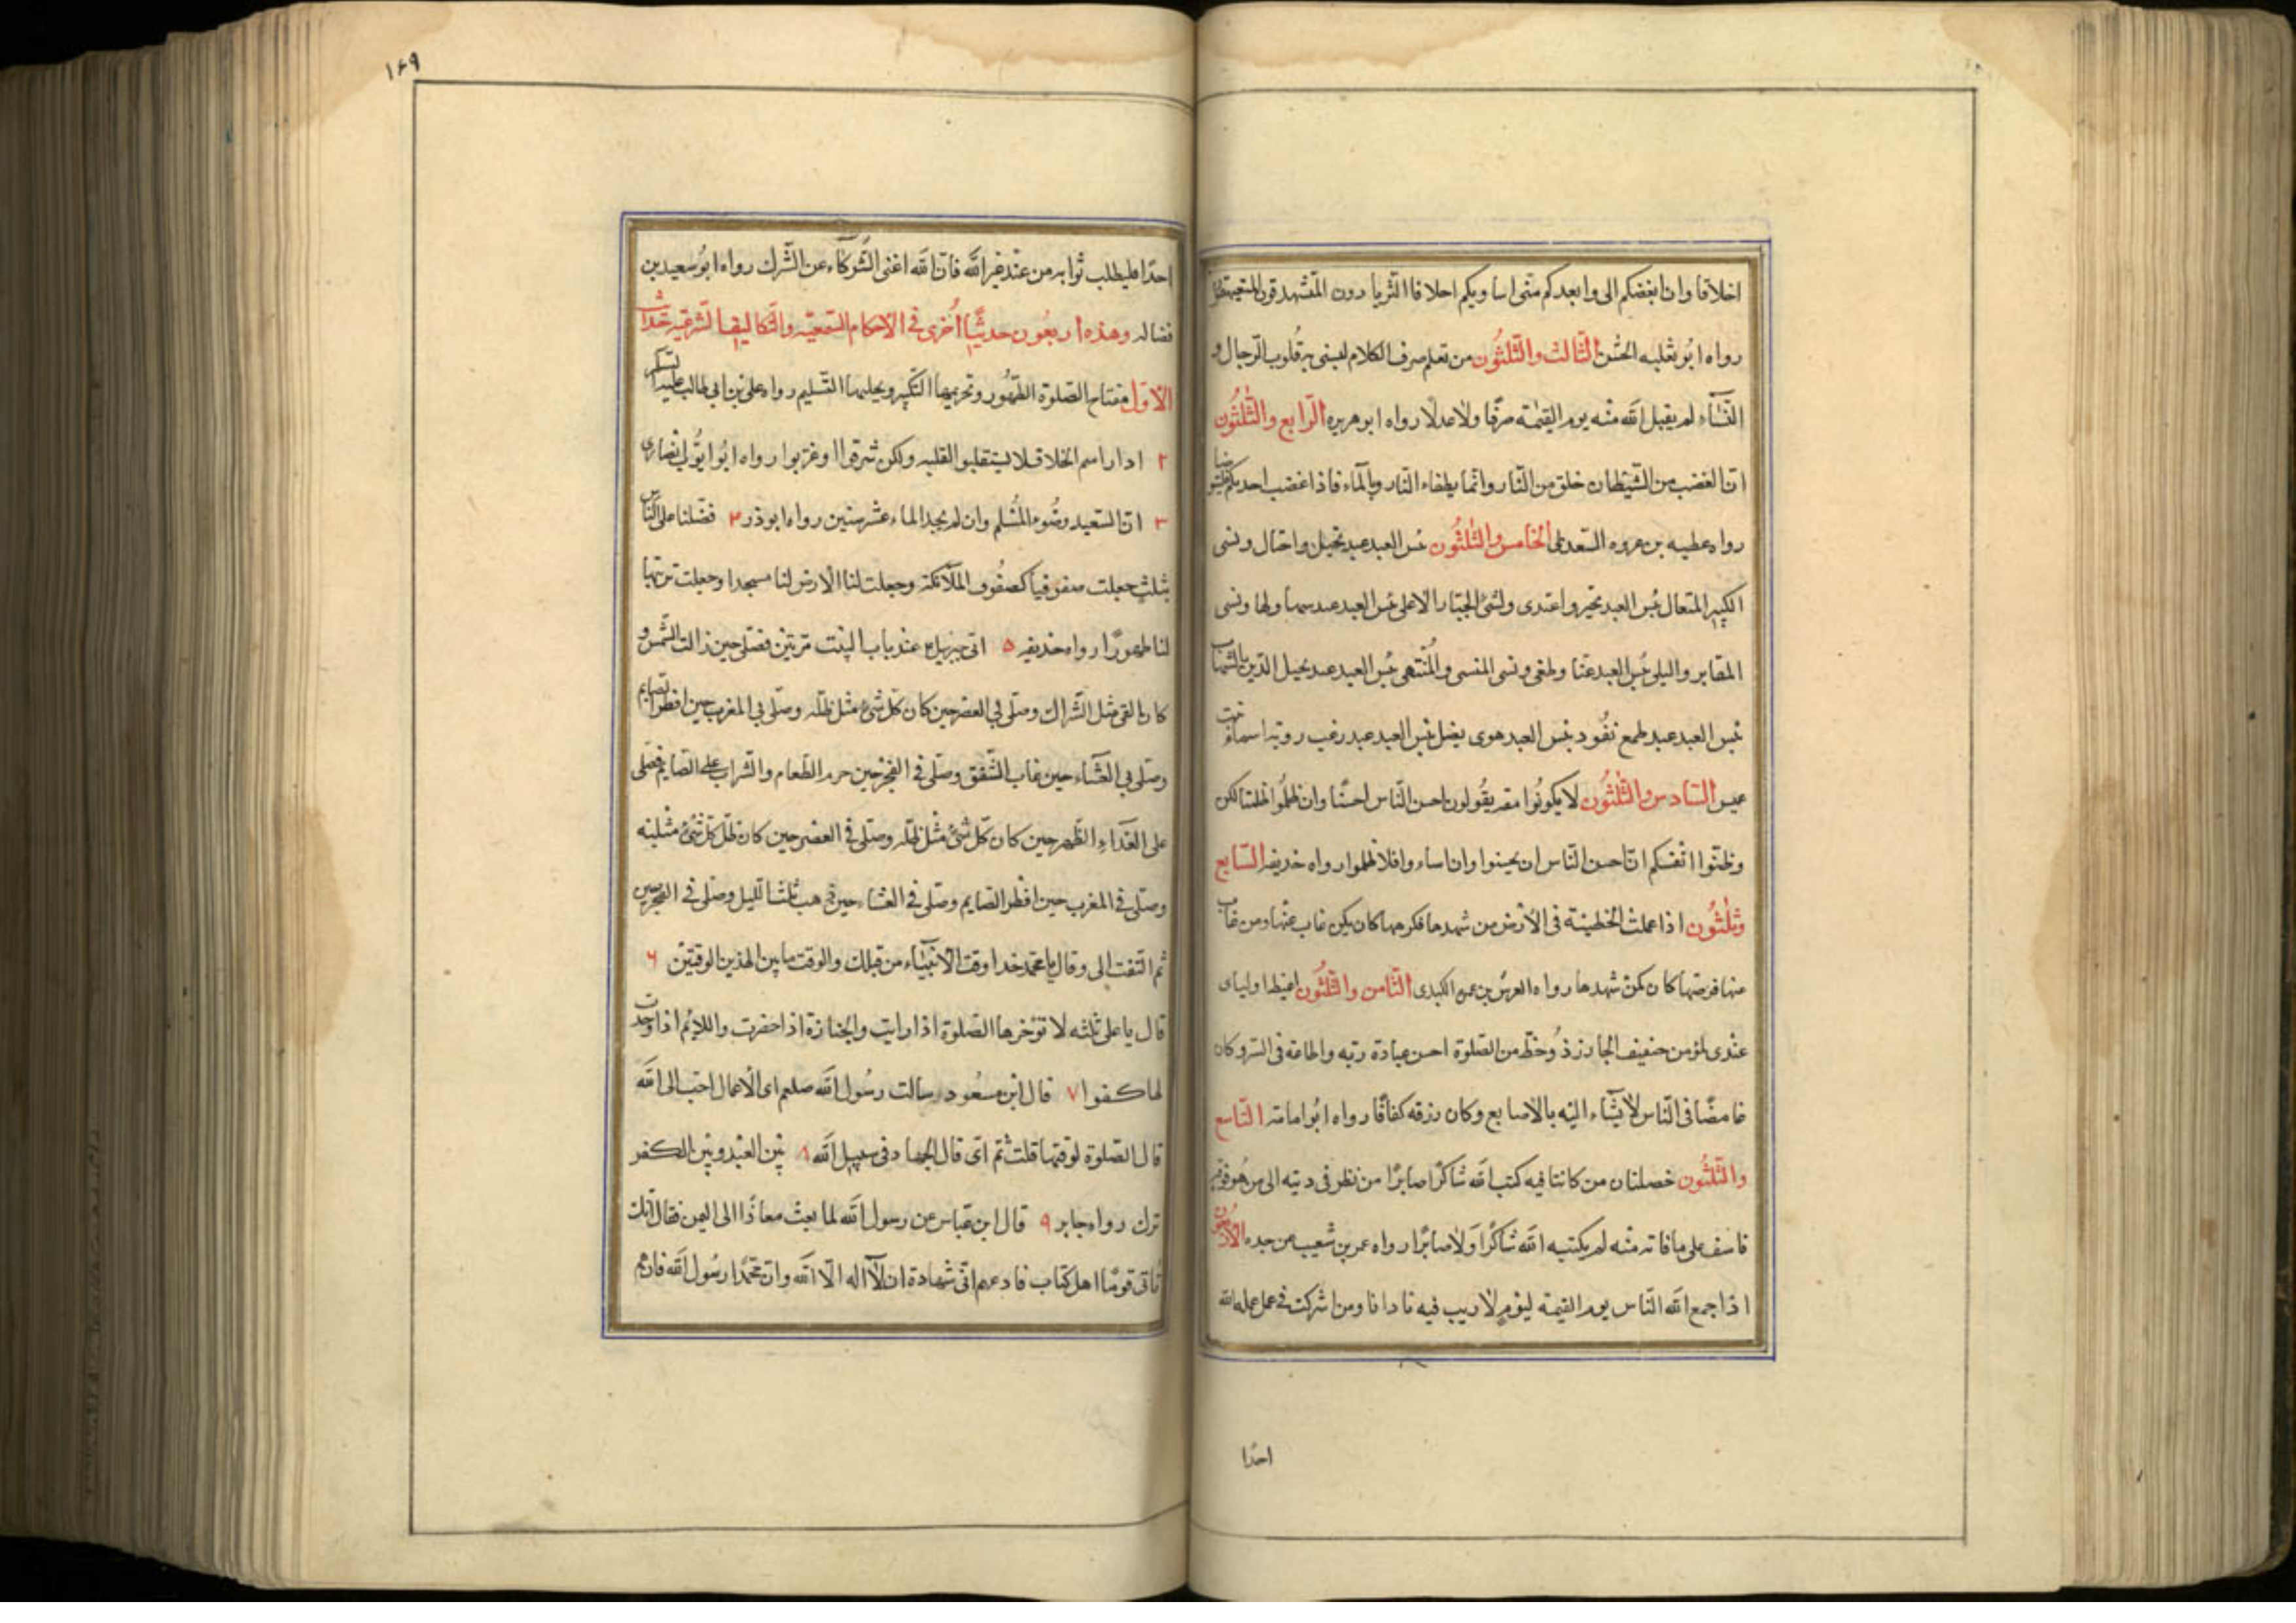 اخلاقا وان ابغضكم الى وابعدكم منى اساويكم اخلاقا الثرثارون المتشدقون المتفيهقون
رواه ابو ثعلبه الخشن الثالث والثلثون من تعلم صرف الكلام ليسبى به قلوب الرجال و
النسآء لم يقبل الله منه يوم القيمة صرفا ولا عدلا رواه ابو هريره الرابع والثلثون
ان الغضب من الشيطان خلق من النار وانما يطفاء النار بالمآء فاذا غضب احدكم فليتوضا
رواه عطيه بن عروه السعدى الخامس والثلثون بئس العبد عبد تخيل واختال ونسى
الكبير المتعال بئس العبد تجبر واعتدى ونسى الجبار الاعلى بئس العبد عبد سها ولها ونسى
المقابر والبلى بئس العبد عتا وطغى ونسى المنسى والمنتهى بئس العبد عبد يحيل الدين بالشهاب
بئس العبد عبد طمع نقود بئس العبد هوى يضل بئس العبد عبد رغب روته اسماء بنت
عميس السادس والثلثون لا يكونوا معه يقولون احسن الناس احسنا وان ظلموا ظلمنا لكن
وظنوا انفسكم ان احسن الناس ان يحسنوا وان اساءوا فلا تظلموا رواه خديفه السابع
وثلثون اذا عملت الخطيئة فى الارض من شهدها فكرهها كان كمن غاب عنها ومن غاب
عنها فرضيها كان كمن شهدها رواه العرس بن عمره الكندى الثامن والثلثون اغبط اوليائى
عندى لمؤمن خفيف الحاد ذو حظ من الصلوة احسن عبادة ربه واطاعه فى السر وكان
غامضا فى الناس لا يشاء اليه بالاصابع وكان رزقه كفافا رواه ابو امامة التاسع
والثلثون خصلتان من كانتا فيه كتب الله شاكرا صابرا من نظر فى دينه الى من هو فوقه
فاسف على ما فاته منه لم يكتبه الله شاكرا ولا صابرا رواه عمر بن شعيب عن جده الاربعون
اذا جمع الله الناس يوم القيمة ليوم لا ريب فيه نادا نا ومن اشركت فى عمل عمله لله
احدا
١٤٩
احدا فليطلب ثوابه من عند غير الله فان الله اغنى الشركآء عن الشرك رواه ابو سعيد بن
فضاله وهذه اربعون حديثا اخرى فى الاحكام السمعيه والتكاليف الشرعيه
الاول مفتاح الصلوة الطهور وتحريمها التكبير وتحليلها التسليم رواه على بن ابى طالب عليه السلم
٢ اذا راسم الخلاء فلا ليستقبلوا القبله ولكن شرقوا او غربوا رواه ابو ايوب الانصارى
٣ ان الصعيد وضوء المسلم وان لم يجد الماء عشر سنين رواه ابو ذر ٤ فضلنا على الناس
بثلث جعلت صفوفنا كصفوف الملائكة وجعلت لنا الارض لنا مسجدا وجعلت تربتها
لنا طهورا رواه حذيفه ٥ اتى جبرئيل ع عند باب البيت مرتين فصلى حين زالت الشمس و
كان الفى مثل الشراك وصلى بى العصر حين كان كل شئ مثل ظله وصلى بى المغرب حين افطر الصايم
وصلى بى العشاء حين غاب الشفق وصلى فى الفجر حين حرم الطعام والشراب على الصايم فصلى
على الغداء الظهر حين كان كل شئ مثل ظله وصلى فى العصر حين كان ظل كل شئ مثليه
وصلى فى المغرب حين افطر الصايم وصلى فى العشاء حين ذهب ثلث الليل وصلى فى الفجر حين
ثم التفت الى وقال يا محمد هذا وقت الانبيآء من قبلك والوقت ما بين الهذين الوقتين ٦
قال يا على ثلثه لا تؤخرها الصلوة اذا اوايت والجنازة اذا حضرت واللايم اذا وجدت
لها كفوا ٧ قال ابن مسعود سالت رسول الله صلعم اى الاعمال احب الى الله
قال الصلوة لوقتها قلت ثم اى قال الجهاد فى سبيل الله ٨ بين العبد وبين الكفر
ترك رواه جابر ٩ قال ابن عباس عن رسول الله لما بعث معاذا الى اليمن فقال انك
تاتى قوما اهل كتاب فادعهم الى شهادة ان لا اله الا الله وان محمدا رسول الله فان هم